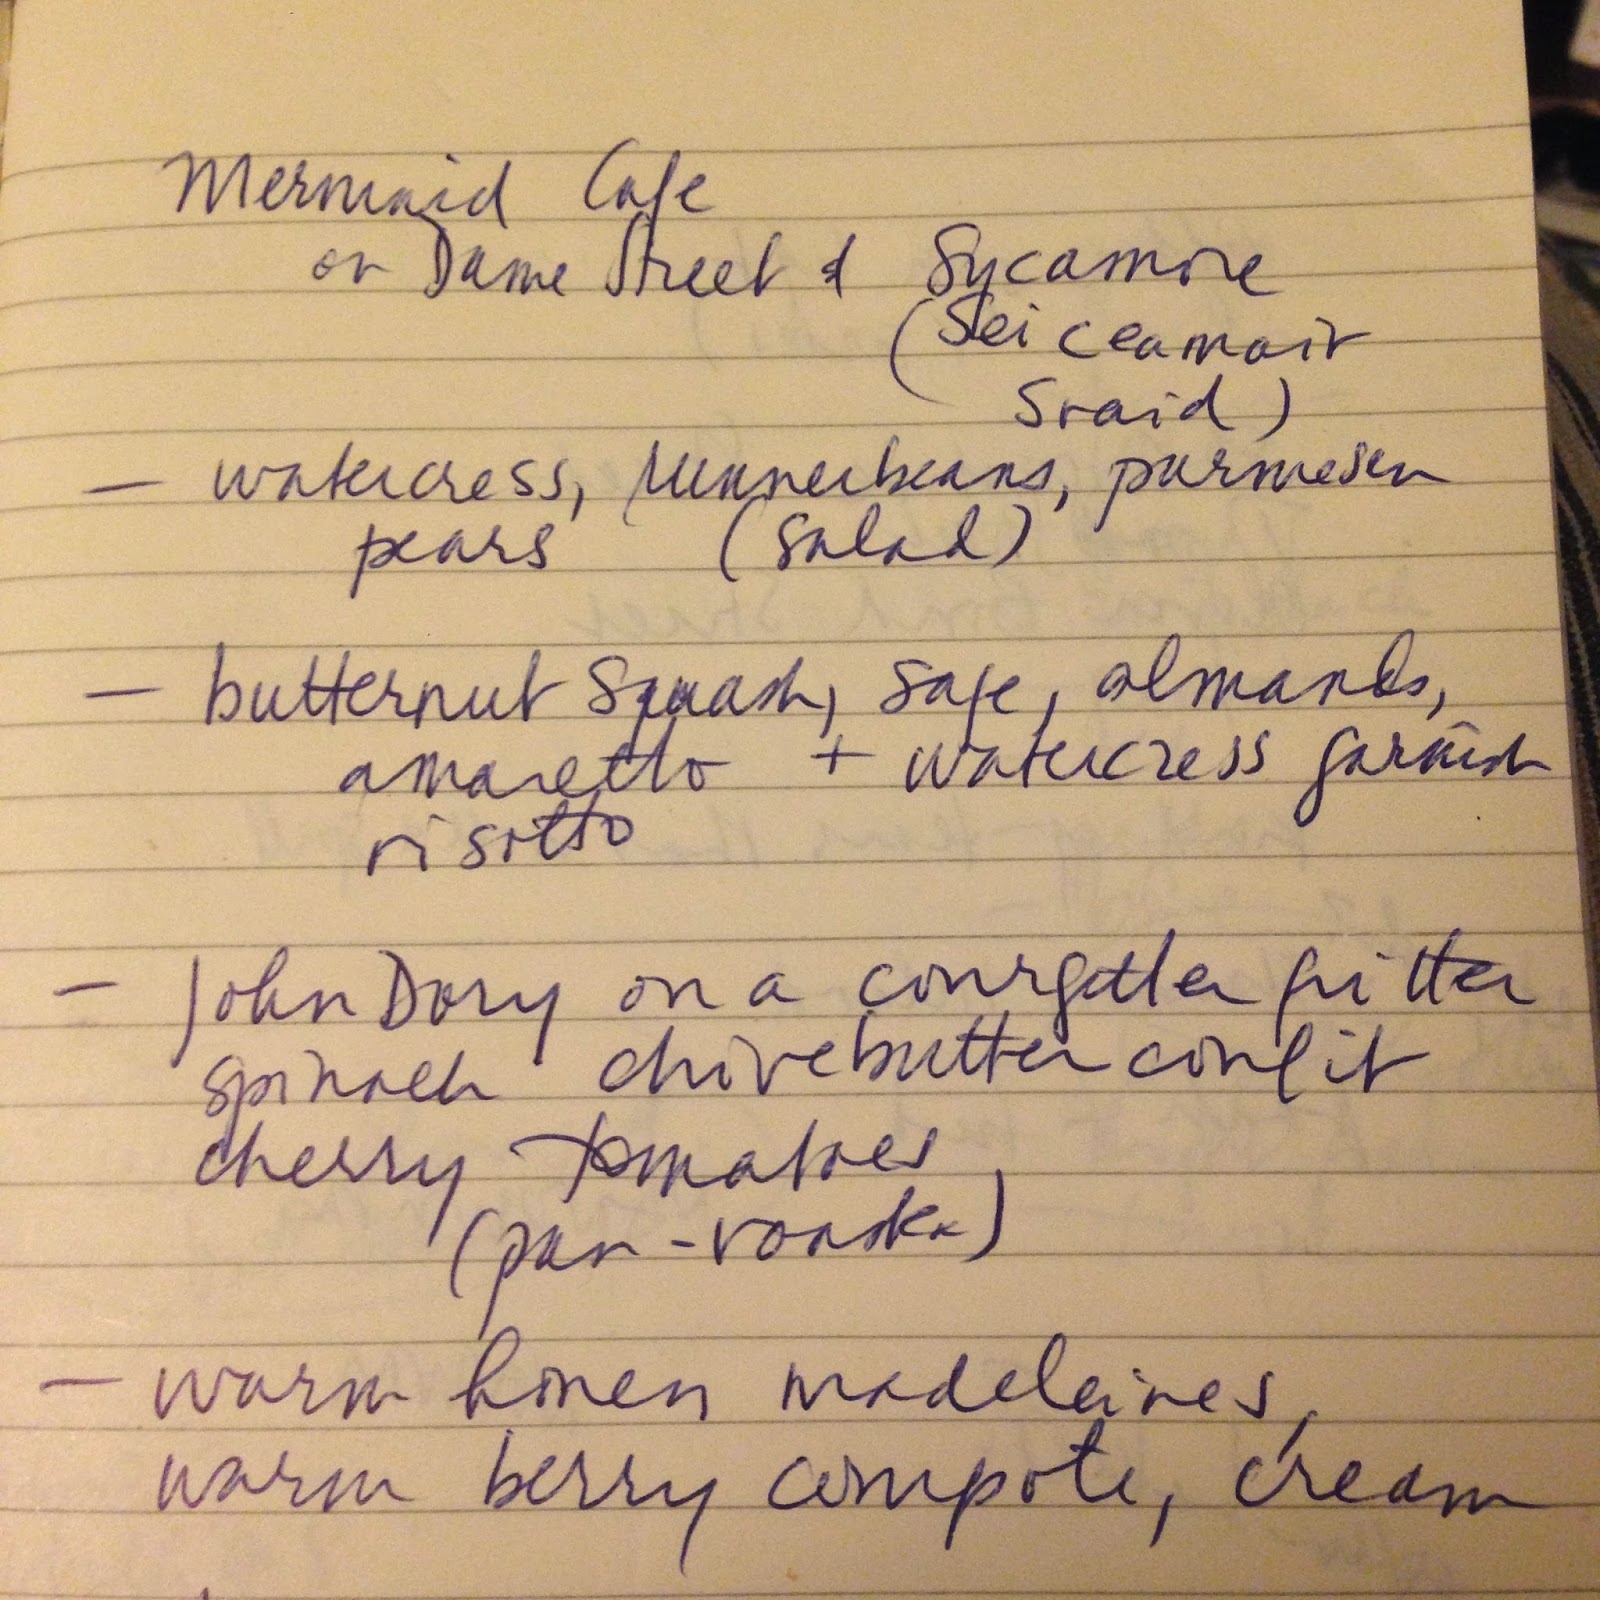 Mermaid Cafe
on Dame Street & Sycamore
(Seiceamair
Sraid)
— watercress, runnerbeans, parmesan
pears (salad)
— butternut squash, sage, almonds,
amaretto + watercress garnish
risotto
- John Dory on a courgette fritter
spinach chivebutter confit
cherry tomatoes
(pan-roasted)
— warm honey madeleines,
warm berry compote, cream